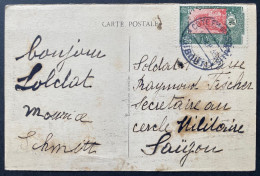 CARTE POSTALE
bonjour
Soldat
Maurice
Schmitt
Soldat
Raymond Fischer
Secrétaire au
cercle Militaire
Saïgon